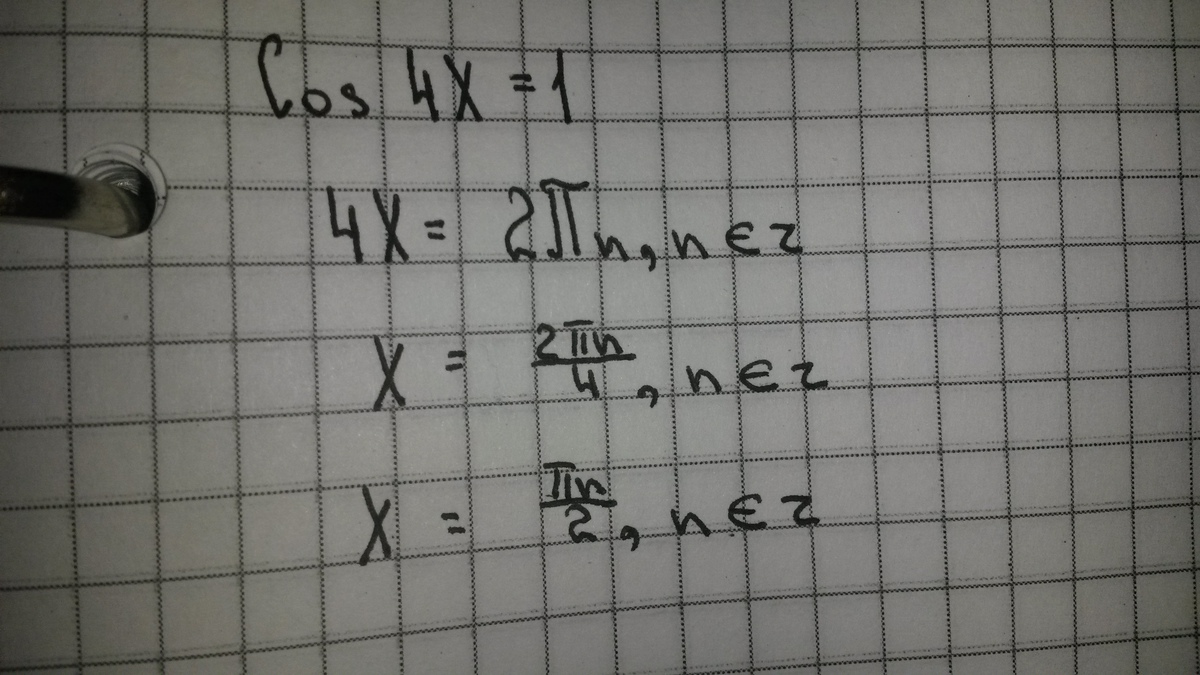 Cos 4X = 1
4X = 2πn, n ∈ z
X = 2πn/4, n ∈ z
X = πn/2, n ∈ z